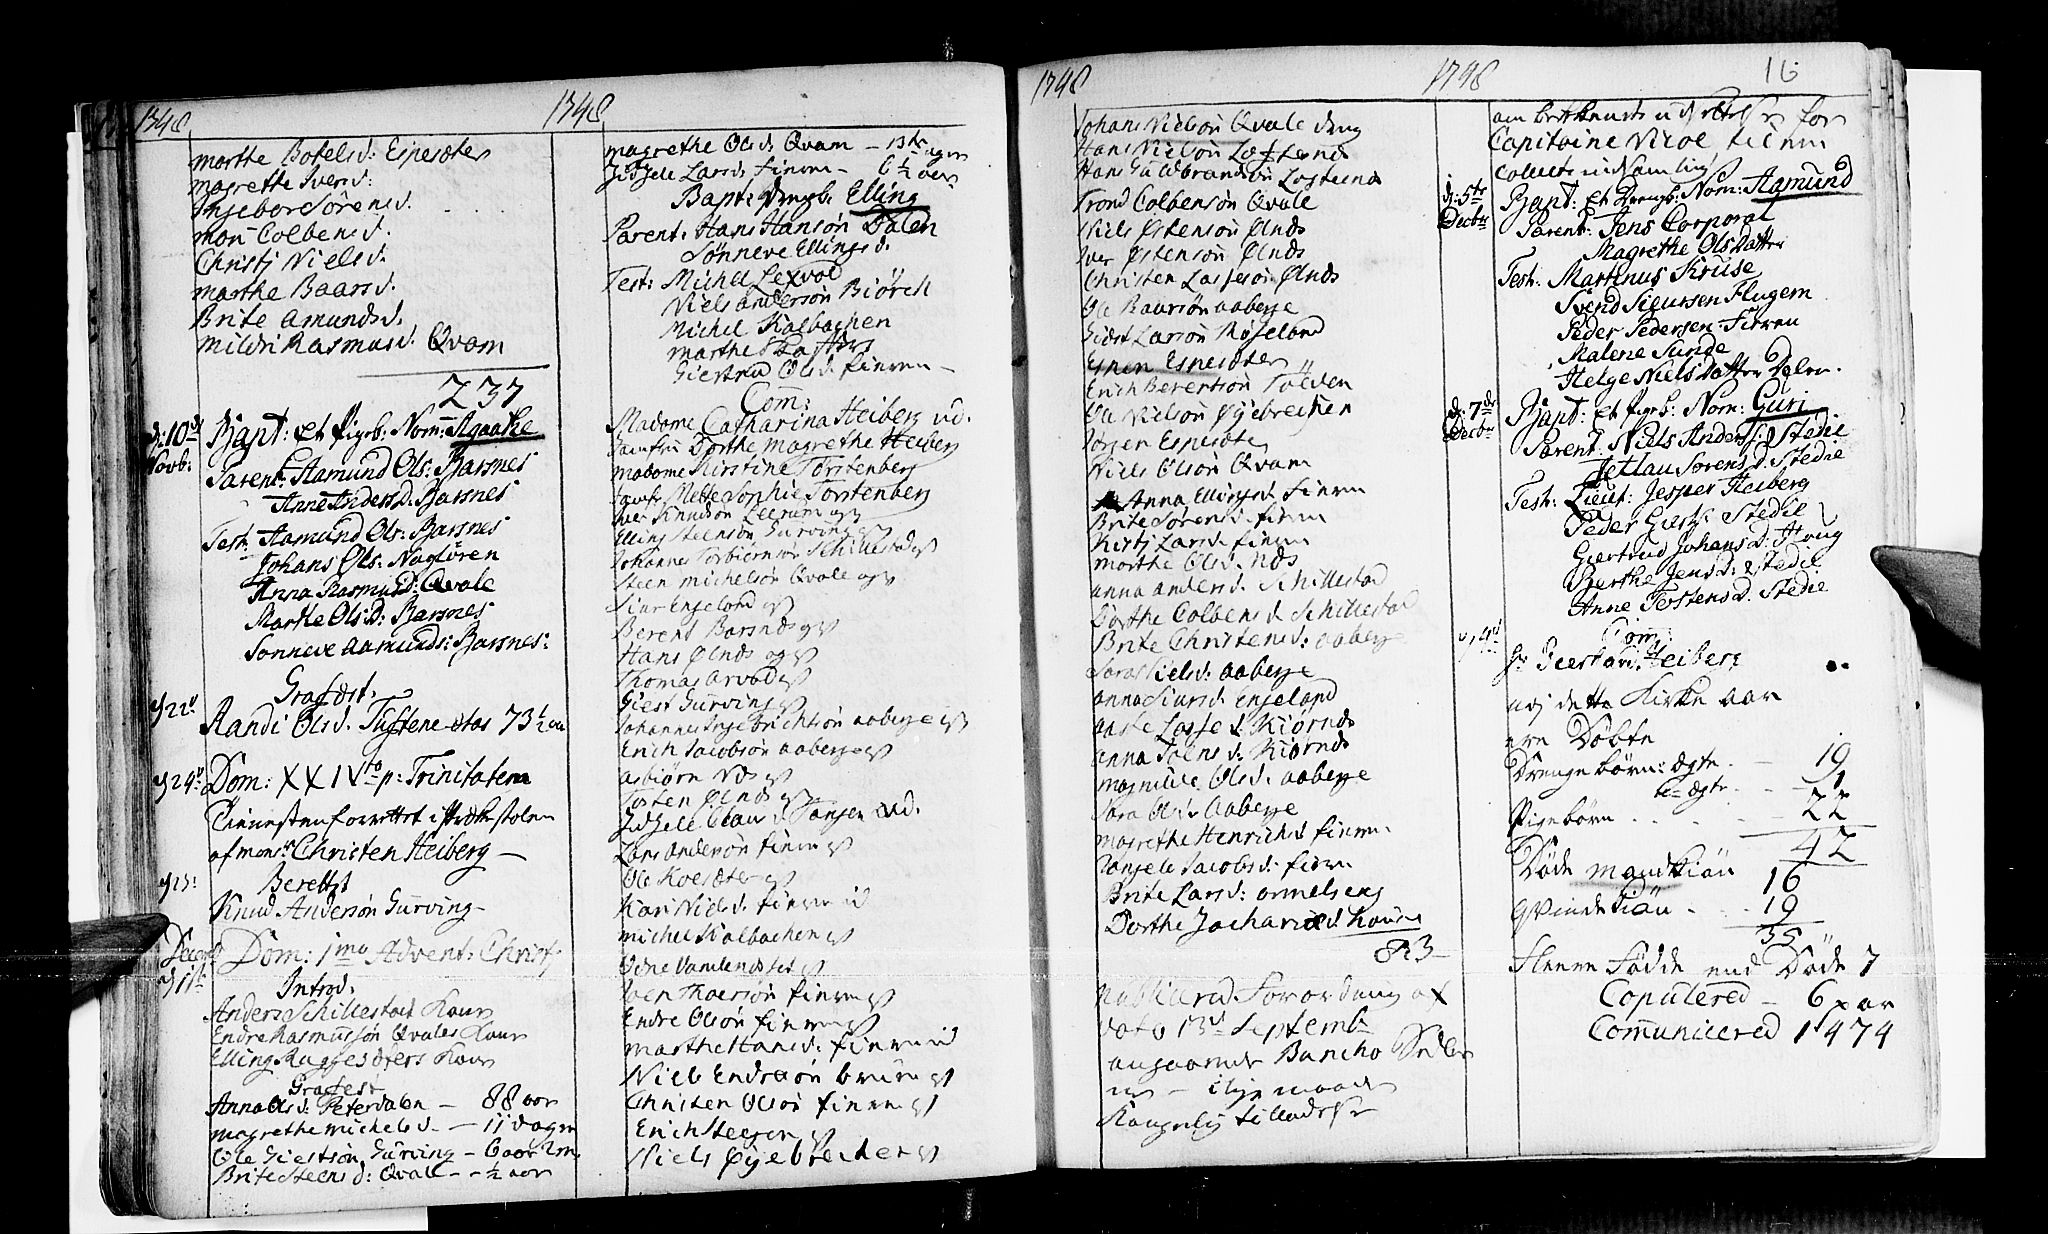 1748
1748
marthe Botelsd: Espesöter
magrette Iversd:
Ingebor Sörensd.
mari Colbensd.
Christj Nielsd.
marthe Baarsd.
Brite amundsd.
mildri Rasmusd. Qvam
237
d: 10de Novb:
Bapt: et Pigeb: Nom: Agaathe
Parent: Aamund Ols: Barsnes
Anne Andersd. Barsnes
Test: Aamund Ols: Barsnes
Johans Ols: Naglören
Anna Rasmusd: Qvale
Marthe Olsd: Barsnes
Sönneve aamunds: Barsnes:
Grafæst.
d 22d
Randi Olsd. Tuftene ætas 73½ aar
d 24d:
Dom: XXIVto p: Trinitatem
Tienesten forrettet i Prækestolen
af monsr Christen Heiberg
Berettet
Knud Andersön Gurving
Decembr d 1ste
Dom: 1mo Advent: Christj
Introd:
Anders Schillestad Kone
Endre Rasmussön Qvales Kone
Elling Rugsesöters Kone
Grafæst
Anna Olsd: Peterdalen — 88 aar
magrethe michelsd. — 11 dager
Ole Giestsön Gurving — 6 aar 2 m.
Brite Steensd: Qvale — ½ aar
magrethe Olsd Qvam — 13 dager
Gidskele Larsd. finnen — 6½ aar
Bapt: drengb. Elling
Parent: Hans Hansön Dalen
Sönneve Ellingsd.
Test: Michel Lexvold
Niels andersön Biörch
Michel Kalbachen
marthe
Giertrud Olsd finnen
Com:
Madame Catharina Heiberg ud.
Jomfru Dorthe Magrethe Heiberg
madame Kirstine Forstenberg
Jomfr Mette Sophie Forstenberg
Iver Knudsön Leerum og
Elling Steensön Gurving og
Johannes Torbiörnsön Schillestad og
Steen michelsön Qvale og
Siur Engeland og
Berent Barsnds og
Hans Ölnds og
Thomas Arvold og
Giest Gurving og
Johannes Ingebrichtsön aaberge og
Erich Jacobsön aaberge og
asbiörn Nds og
Tosten Ölnds og
Gidskele Clausd Tangen ud.
Lars andersön finnen og
Ole Kvesöter og
Kari Nielsd. finnen id
michel Kalbachen og
Odne Vamlendsset og
Joen Thoersön finnen og
Endre Olsön finnen og
marthe Hansd: finnen id
Niels Endresön bruun og
Christen Olsön finnen og
Erich Steegen og
Niels Öyebrecken og
1748
1748
16
Johans Nielsön Qvale dreng
Hans Nielsön Loftesnds
Hans Guldbrandsön Loftesnds
Trond Colbensön Qvale
Niels Östensön Ölnds
Iver Östensön Ölnds
Christen Lassesön Ölnds
Ole Baarsön aaberge
Giest Larsön Röseland
Espen Espesöter
Erich Berentsön Tölden
Ole Nielsön Öyebrecken
Jörgen Espesöter
Niels Olsön Qvam
Anna Ellingsd finnen
Brite Sörensd. finnen
Kirstj Larsd. finnen
marthe Olsd. Nds
anna andersd. Schillestad
Dorthe Colbensd Schillestad
Brite Christensd: aaberge
Sara Nielsd. aaberge
anna Siursd. Engeland
anne Lassed: Kiörnds
anna Joensd: Kiörnds
magnilde Olsd. aaberge
Sara Olsd. Aaberge
magrethe Henrichsd finnen.
Jangele Jacobsd: finnen
Brite Larsd: ommelseng
Dorthe Zachariæd Kones
83
Publicered Forordning af
dato 13de Septemb
angaaende Bancho Sedler
ne — lige maade
Kongelig tilladelse
om bekkende udskrivelser for
Capitaine Nicol til en
Collect indsamling
d: 5te Decbr
Bapt: et drengb: Nom: Aamund
Parent: Jens Corporal
Magrethe Ols Datter
Test: Martinus Kruse
Svend Sigursen Flugem
Peder Pedersen Fieren
Malene Sunde
Helge Niels Datter Dalen.
d: 7de Decbr
Bapt: et Pigeb: Nom: Guri
Parent: Niels Anders: Stedie
Jetlau Sorensd. Stedie
Test: Lieut: Jesper Heiberg
Peder Giests: Stedie
Giertrud Johansd: Houg
Berthe Jensd: Stedie
Anne Torstensd. Stedie
Com:
Hr Giertson Heiberg
udj dette Kirke aar
ere Döbte
Drengebörn: ægte. — 19
u-ægte . . 1
Pigebörn . . . . 22
42
Döde mandkiön 16
qvindekiön . . . 19
35
Fleere Födde end Döde 7
Copulered — 6 par
Communicered 1474